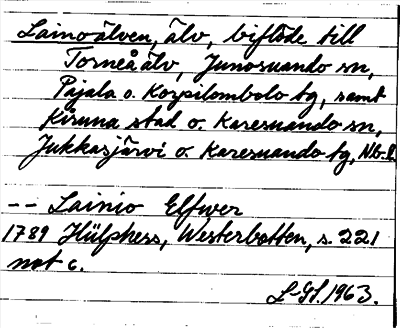 Lainoälven, älv, biflöde till
Torneå älv, Junosuando sn,
Pajala o. Korpilombolo tg, samt
Kiruna stad o. Karesuando sn,
Jukkasjärvi o. Karesuando tg, Nb.l.
-- Lainio Elfwer
1789 Hülphers, Westerbotten, s. 221
not c.
L-Gl. 1963.